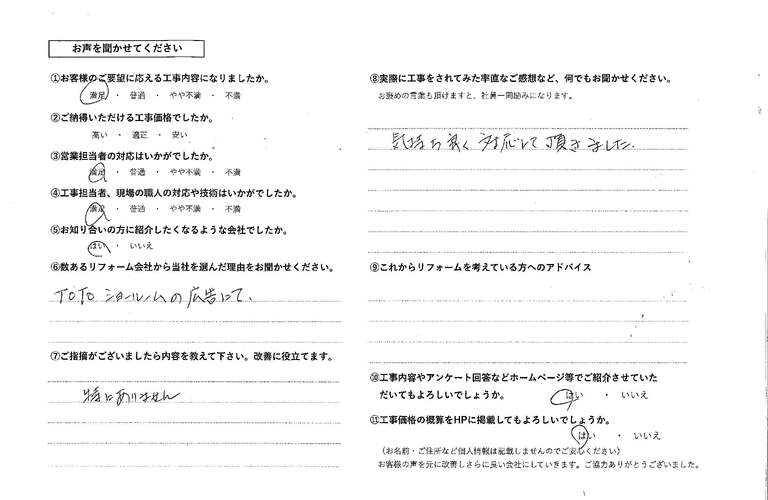 お声を聞かせてください
①お客様のご要望に応える工事内容になりましたか。
満足 ・ 普通 ・ やや不満 ・ 不満
②ご納得いただける工事価格でしたか。
高い ・ 適正 ・ 安い
③営業担当者の対応はいかがでしたか。
満足 ・ 普通 ・ やや不満 ・ 不満
④工事担当者、現場の職人の対応や技術はいかがでしたか。
満足 ・ 普通 ・ やや不満 ・ 不満
⑤お知り合いの方に紹介したくなるような会社でしたか。
はい ・ いいえ
⑥数あるリフォーム会社から当社を選んだ理由をお聞かせください。
TOTO ショールームの広告にて、
⑦ご指摘がございましたら内容を教えて下さい。改善に役立てます。
特にありません
⑧実際に工事をされてみた率直なご感想など、何でもお聞かせください。
お褒めの言葉も頂けますと、社員一同励みになります。
気持ち良く対応して頂きました。
⑨これからリフォームを考えている方へのアドバイス
⑩工事内容やアンケート回答などホームページ等でご紹介させていた
だいてもよろしいでしょうか。 はい ・ いいえ
⑪工事価格の概算をHPに掲載してもよろしいでしょうか。
はい ・ いいえ
（お名前・ご住所など個人情報は記載しませんのでご安心ください）
お客様の声を元に改善しさらに良い会社にしていきます。ご協力ありがとうございました。